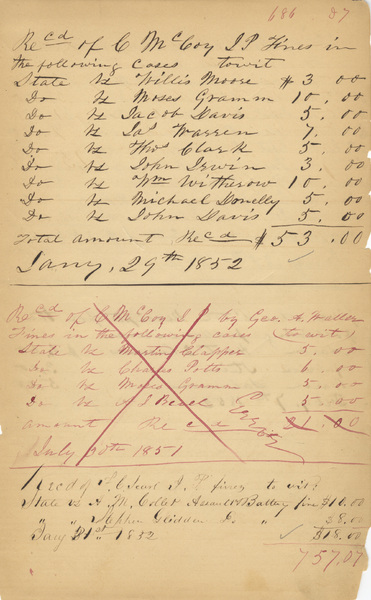 686 D7
Recd of C McCoy JP Fines in
the following cases towit
State Vs Willis Moore $3 00
Do Vs Moses Gramm 10.00
Do Vs Jacob Davis 5.00
Do Vs Jas Warren 7.00
Do Vs Thos Clark 5.00
Do Vs John Irwin 3.00
Do Vs Wm Witherow 10.00
Do Vs Michael Donelly 5.00
Do Vs John Davis 5.00
Total amount Recd $53.00
Jany, 29th 1852
Recd of C McCoy JP by Geo. A. Waller
Fines in the following cases (to wit)
State Vs Martin Clapper 5.00
Do Vs Charles Potts 6.00
Do Vs Moses Gramm 5.00
Do Vs A J Beach 5.00
amount Recd 21.00
Error
July 20th 1851
Recd of J. P. fines to wit:
State vs A. M. Assault & Battery fine $10.00
" " Stephen Do " $8.00
Jany 31st 1852 $18.00
757.07